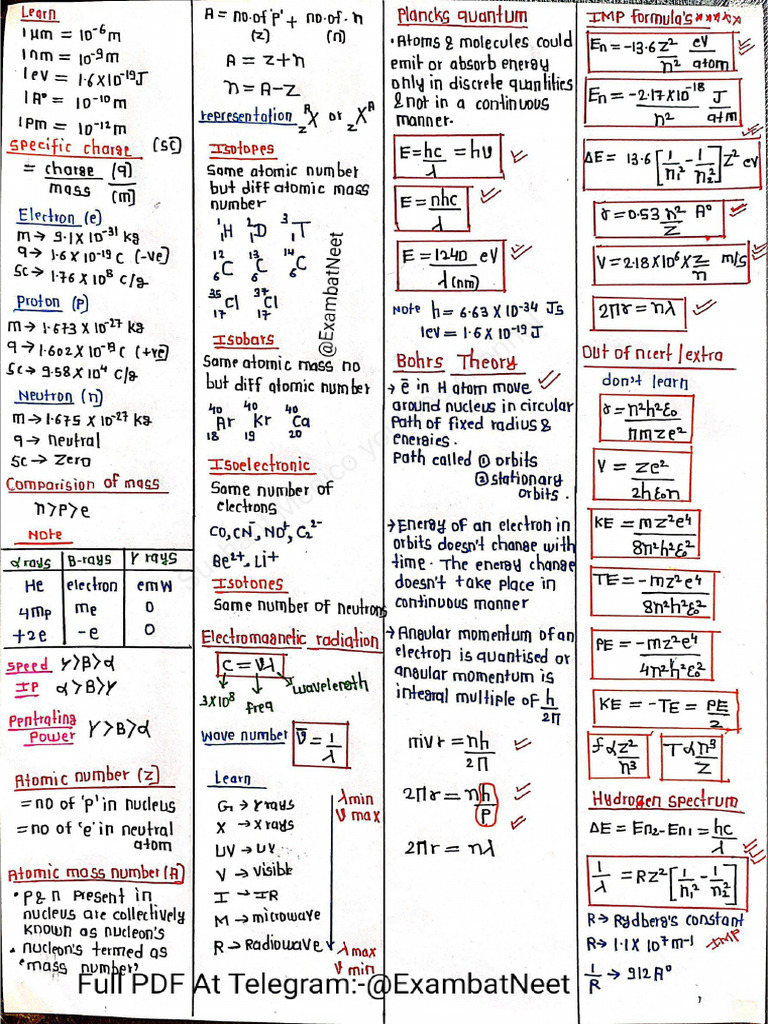 Learn
1 μm = 10⁻⁶ m
1 nm = 10⁻⁹ m
1 eV = 1.6 X 10⁻¹⁹ J
1 A° = 10⁻¹⁰ m
1 Pm = 10⁻¹² m
Specific charge (SC)
= charge (q) / mass (m)
Electron (e)
m → 9.1 X 10⁻³¹ kg
q → 1.6 X 10⁻¹⁹ C (-ve)
SC → 1.76 X 10⁸ C/g
Proton (P)
m → 1.673 X 10⁻²⁷ kg
q → 1.602 X 10⁻¹⁹ C (+ve)
SC → 9.58 X 10⁴ C/g
Neutron (n)
m → 1.675 X 10⁻²⁷ kg
q → neutral
SC → Zero
Comparision of mass
n > P > e
Note
α rays | B-rays | γ rays
He | electron | emw
4mp | me | 0
+2e | -e | 0
Speed γ > B > α
IP α > B > γ
Pentrating Power γ > B > α
Atomic number (Z)
= no of 'P' in nucleus
= no of 'e' in neutral
atom
Atomic mass number (A)
• P & n Present in
nucleus are collectively
known as nucleon's
• nucleon's termed as
'mass number'
A = no. of 'P' + no. of . n
(Z) (n)
A = Z + n
n = A - Z
representation ᴬ_Z X or _Z Xᴬ
Isotopes
Same atomic number
but diff atomic mass
number
¹₁H ²₁D ³₁T
¹²₆C ¹³₆C ¹⁴₆C
³⁵₁₇Cl ³⁷₁₇Cl
Isobars
Same atomic mass no
but diff atomic number
⁴⁰₁₈Ar ⁴⁰₁₉Kr ⁴⁰₂₀Ca
Isoelectronic
Same number of
electrons
CO, CN⁻, NO⁺, C₂²⁻
Be²⁺, Li⁺
Isotones
Same number of neutrons
Electromagnetic radiation
C = νλ
3X10⁸ freq wavelength
Wave number ν̅ = 1/λ
Learn
G → γ rays λ min
X → X rays ν max
UV → UV
V → visible
I → IR
M → microwave
R → Radiowave λ max
ν min
@ExambatNeet
Plancks quantum
• Atoms & molecules could
emit or absorb energy
only in discrete quantities
& not in a continuous
manner.
E = hc/λ = hν
E = nhc/λ
E = 1240/λ(nm) eV
Note h = 6.63 X 10⁻³⁴ Js
1eV = 1.6 X 10⁻¹⁹ J
Bohrs Theory
→ e̅ in H atom move
around nucleus in circular
Path of fixed radius &
energies.
Path called ① orbits
② stationary
orbits.
→ Energy of an electron in
orbits doesn't change with
time. The energy change
doesn't take place in
continuous manner
→ Angular momentum of an
electron is quantised or
angular momentum is
integral multiple of h/2Π
mvr = nh/2Π
2Πr = nh/P
2Πr = nλ
IMP formula's *****
En = -13.6 Z²/n² eV/atom
En = -2.17X10⁻¹⁸/n² J/atm
ΔE = 13.6 [1/n₁² - 1/n₂²] Z² eV
r = 0.53 n²/Z A°
V = 2.18 X 10⁶ X Z/n m/s
2Πr = nλ
Out of ncert / extra
don't learn
r = n²h²ε₀ / Πmze²
V = ze² / 2hε₀n
KE = mz²e⁴ / 8n²h²ε₀²
TE = -mz²e⁴ / 8n²h²ε₀²
PE = -mz²e⁴ / 4n²h²ε₀²
KE = -TE = PE/2
f α z²/n³ T α n³/Z
Hydrogen spectrum
ΔE = En₂ - En₁ = hc/λ
1/λ = RZ² [1/n₁² - 1/n₂²]
R → Rydberg's constant
R → 1.1 X 10⁷ m⁻¹ IMP
1/R → 912 A°
Full PDF At Telegram:-@ExambatNeet